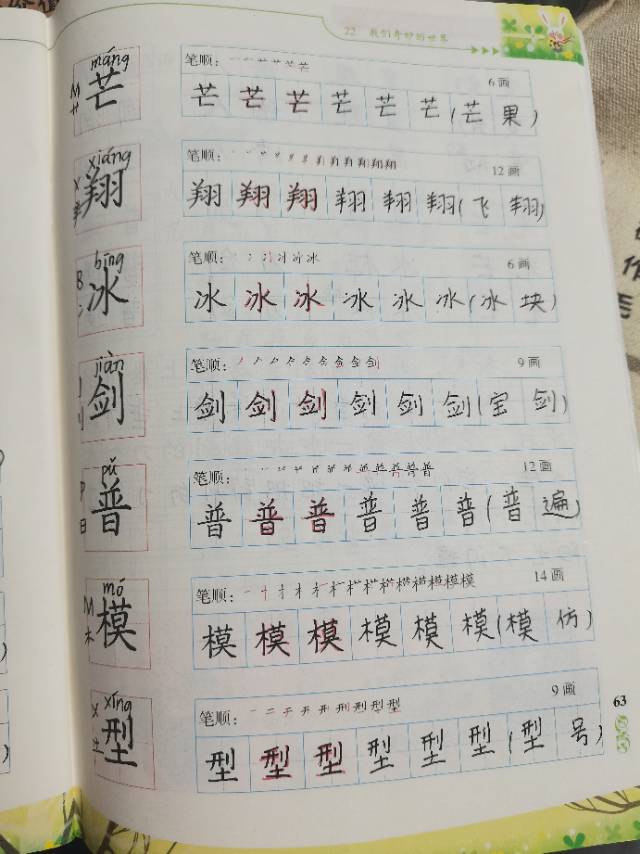 22 我们奇妙的世界
máng
M
艹
芒
笔顺: 6画
芒 芒 芒 芒 芒 芒 (芒 果)
xiáng
X
羽
翔
笔顺: 12画
翔 翔 翔 翔 翔 翔 (飞 翔)
bīng
B
冫
冰
笔顺: 6画
冰 冰 冰 冰 冰 冰 (冰 块)
jiàn
J
刂
剑
笔顺: 9画
剑 剑 剑 剑 剑 剑 (宝 剑)
pǔ
P
日
普
笔顺: 12画
普 普 普 普 普 普 (普 遍)
mó
M
木
模
笔顺: 14画
模 模 模 模 模 模 (模 仿)
xíng
X
土
型
笔顺: 9画
型 型 型 型 型 型 (型 号)
63